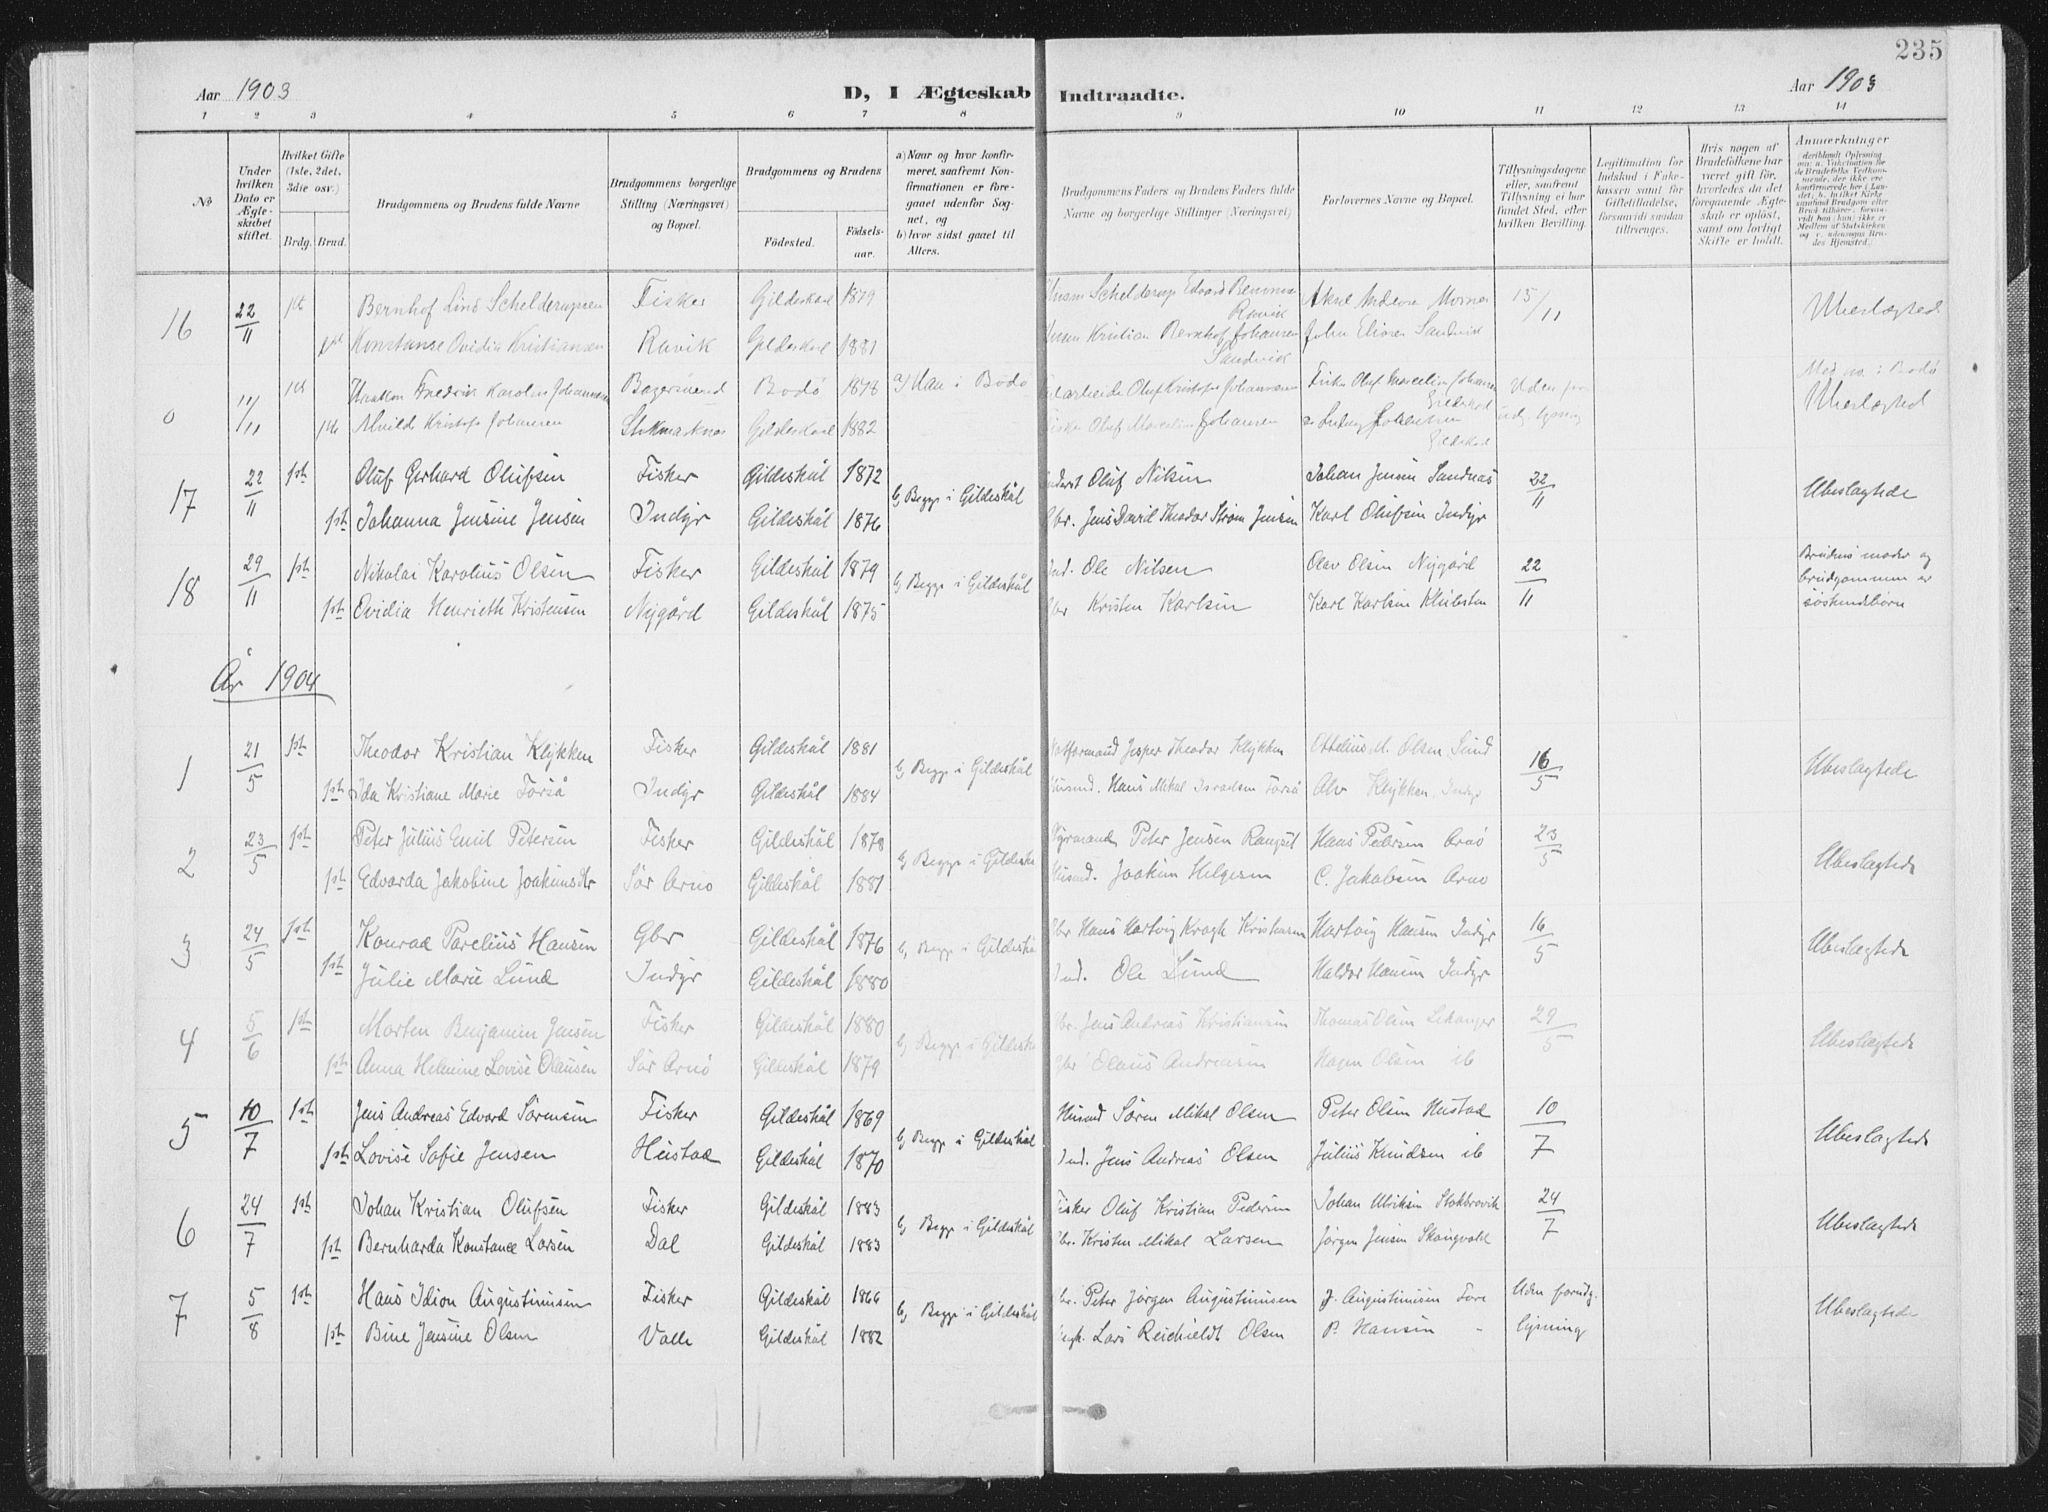 235
Aar 1903
D, I Ægteskab Indtraadte.
Aar 1903
1 2 3 4 5 6 7 8 9 10 11 12 13 14
No
Under hvilken Dato er Ægteskabet stiftet.
Hvilket Gifte (1ste, 2det, 3die osv.)
Brdg. Brud.
Brudgommens og Brudens fulde Navne
Brudgommens borgerlige Stilling (Næringsvei) og Bopæl.
Brudgommens og Brudens
Fødested. Fødselsaar.
a) Naar og hvor konfirmeret, saafremt Konfirmationen er foregaaet udenfor Sognet, og
b) hvor sidst gaaet til Alters.
Brudgommens Faders og Brudens Faders fulde Navne og borgerlige Stillinger (Næringsvei)
Forlovernes Navne og Bopæl.
Tillysningsdagene eller, saafremt Tillysning ei har fundet Sted, efter hvilken Bevilling.
Legitimation for Indskud i Enkekassen samt for Giftetilladelse, forsaavidt saadan tiltrænges.
Hvis nogen af Brudefolkene har været gift før, hvorledes da det foregaaende Ægteskab er opløst, samt om lovligt Skifte er holdt.
Anmærkninger
16 22/11 1st Bernhof Lind Schelderupsen Fisker Gildeskaal 1879 Schelderup Edvard Ravik 15/11 Ubeslægted
1st Konstanse Ovidia Kristiansen Ravik Gildeskaal 1881 Kristian Bernhof Johansen Sandvik John Sandvik
0 11/11 1st Haakon Fredrik Karolus Johannesen Bodø 1878 a) Han i Bodø Oluf Kristofer Johannesen Fisker Oluf Marcelius Johansen Gildeskaal Uden for Med no. i Bodø Ubeslægted
1ste Alvild Kristofa Johansen Stokmarknes Gildeskaal 1882 Fisker Oluf Marcelius Johansen Ludvig Gildeskaal lysning
17 22/11 1st Oluf Gerhard Olufsen Fisker Gildeskål 1872 b) Begge i Gildeskål Oluf Nilsen Johan Jensen Sandnæs 22/11 Ubeslagtede
1st Johanna Jensine Jensen Indyr Gildeskål 1876 Gbr. Jens David Theodor Strøm Jensen Karl Olufsen Indyr
18 29/11 1st Nikolai Karolius Olsen Fisker Gildeskål 1879 b) Begge i Gildeskål Ind. Ole Nilsen Olav Olsen Nygård 22/11 Brudens moder og brudgommen er søskendebørn
1st Ovidia Henrieth Kristensen Nygård Gildeskål 1875 Gbr Kristen Karlsen Karl Karlsen
År 1904
1 21/5 1st Theodor Kristian Klykken Fisker Gildeskål 1881 b) Begge i Gildeskål Jesper Theodor Klykken Ottelius M. Olsen Sund 16/5 Ubeslagtede
1st Ida Kristiane Marie Førså Indyr Gildeskål 1884 Husmd. Hans Mikal Israelsen Førså Olav Klykken Indyr
2 23/5 1st Peter Julius Emil Petersen Fisker Gildeskål 1878 b) Begge i Gildeskå Styrmand Peter Jensen Hans Pedersen Arnø 23/5 Ubeslagtede
1st Edvarda Jakobine Joakimsdtr Sør Arnø Gildeskål 1881 Husmd. Joakim Helgesen C. Jakobsen Arnø
3 24/5 1st Konrad Parelius Hansen Gbr Gildeskål 1876 b) Begge i Gildeskå Gbr Hans Hartvig Krogh Kristensen Hartvig Hansen Indyr 16/5 Ubeslagtede
1st Julie Marie Lund Indyr Gildeskål 1880 Ind. Ole Lund Haldor Hansen Indyr
4 5/6 1st Morten Benjamin Jensen Fisker Gildeskål 1880 b) Begge i Gildeskå Gbr. Jens Andreas Kristiansen Thomas Olsen Lekanger 29/5 Ubeslægtede
1st Anna Helmine Lovise Olausen Sør Arnø Gildeskål 1879 Gbr Olaus Andreasen Hagen Olsen ib
5 10/7 1st Jens Andreas Edvard Sørensen Fisker Gildeskål 1869 b) Begge i Gildeskål Husmd Søren Mikal Olsen Peter Olsen Hustad 10/7 Ubeslagtede
1st Lovise Sofie Jensen Hustad Gildeskål 1870 Ind. Jens Andreas Olsen Julius Knudsen ib
6 24/7 1st Johan Kristian Olufsen Fisker Gildeskål 1883 b) Begge i Gildeskål Fisker Oluf Kristian Pedersen Johan Ulriksen 24/7 Ubeslagtede
1st Bernharda Konstance Larsen Dal Gildeskål 1883 Gbr. Kristen Mikal Larsen Jørgen Jensen Skougvold
7 5/8 1st Hans Idion Augustinusen Fisker Gildeskål 1866 b) Begge i Gildeskål Gbr. Peter Jørgen Augustinusen J. Augustinusen Fore Uden forudg. lysning Ubeslagtede
1st Bine Jensine Olsen Valle Gildeskål 1882 Lars Reichseldt Olsen P. Hansen -